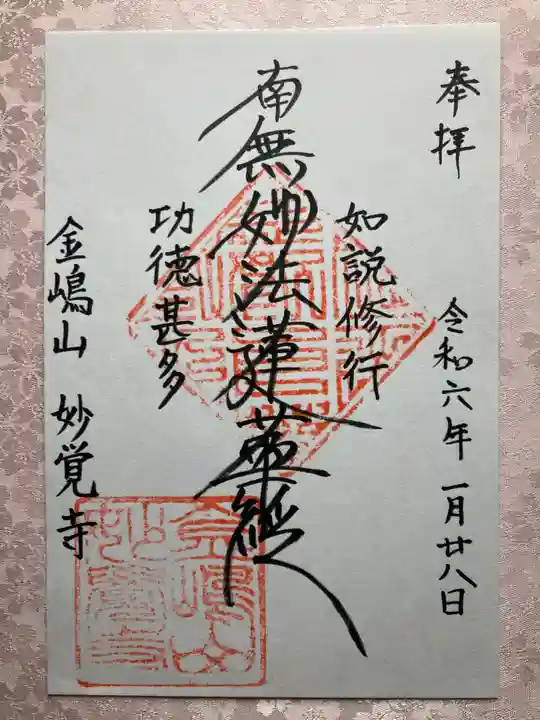 奉拝
令和六年 一月廿八日
如説修行
南無妙法蓮華経
功徳甚多
金嶋山 妙覚寺